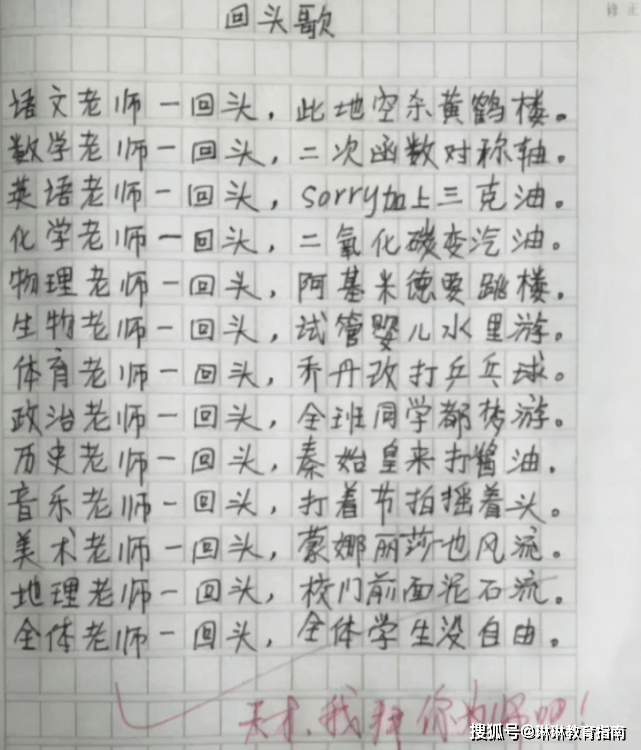 修正
回头歌
语文老师一回头，此地空余黄鹤楼。
数学老师一回头，二次函数对称轴。
英语老师一回头，sorry加上三克油。
化学老师一回头，二氧化碳变汽油。
物理老师一回头，阿基米德要跳楼。
生物老师一回头，试管婴儿水里游。
体育老师一回头，乔丹改打乒乓球。
政治老师一回头，全班同学都梦游。
历史老师一回头，秦始皇来打酱油.
音乐老师一回头，打着节拍摇着头。
美术老师一回头，蒙娜丽莎也风流。
地理老师一回头，校门前面泥石流.
全体老师一回头，全体学生没自由。
天才，我拜你为师吧！
搜狐号@琳琳教育指南